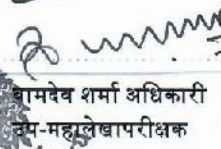 बामदेव शर्मा अधिकारी
उप-महालेखापरीक्षक